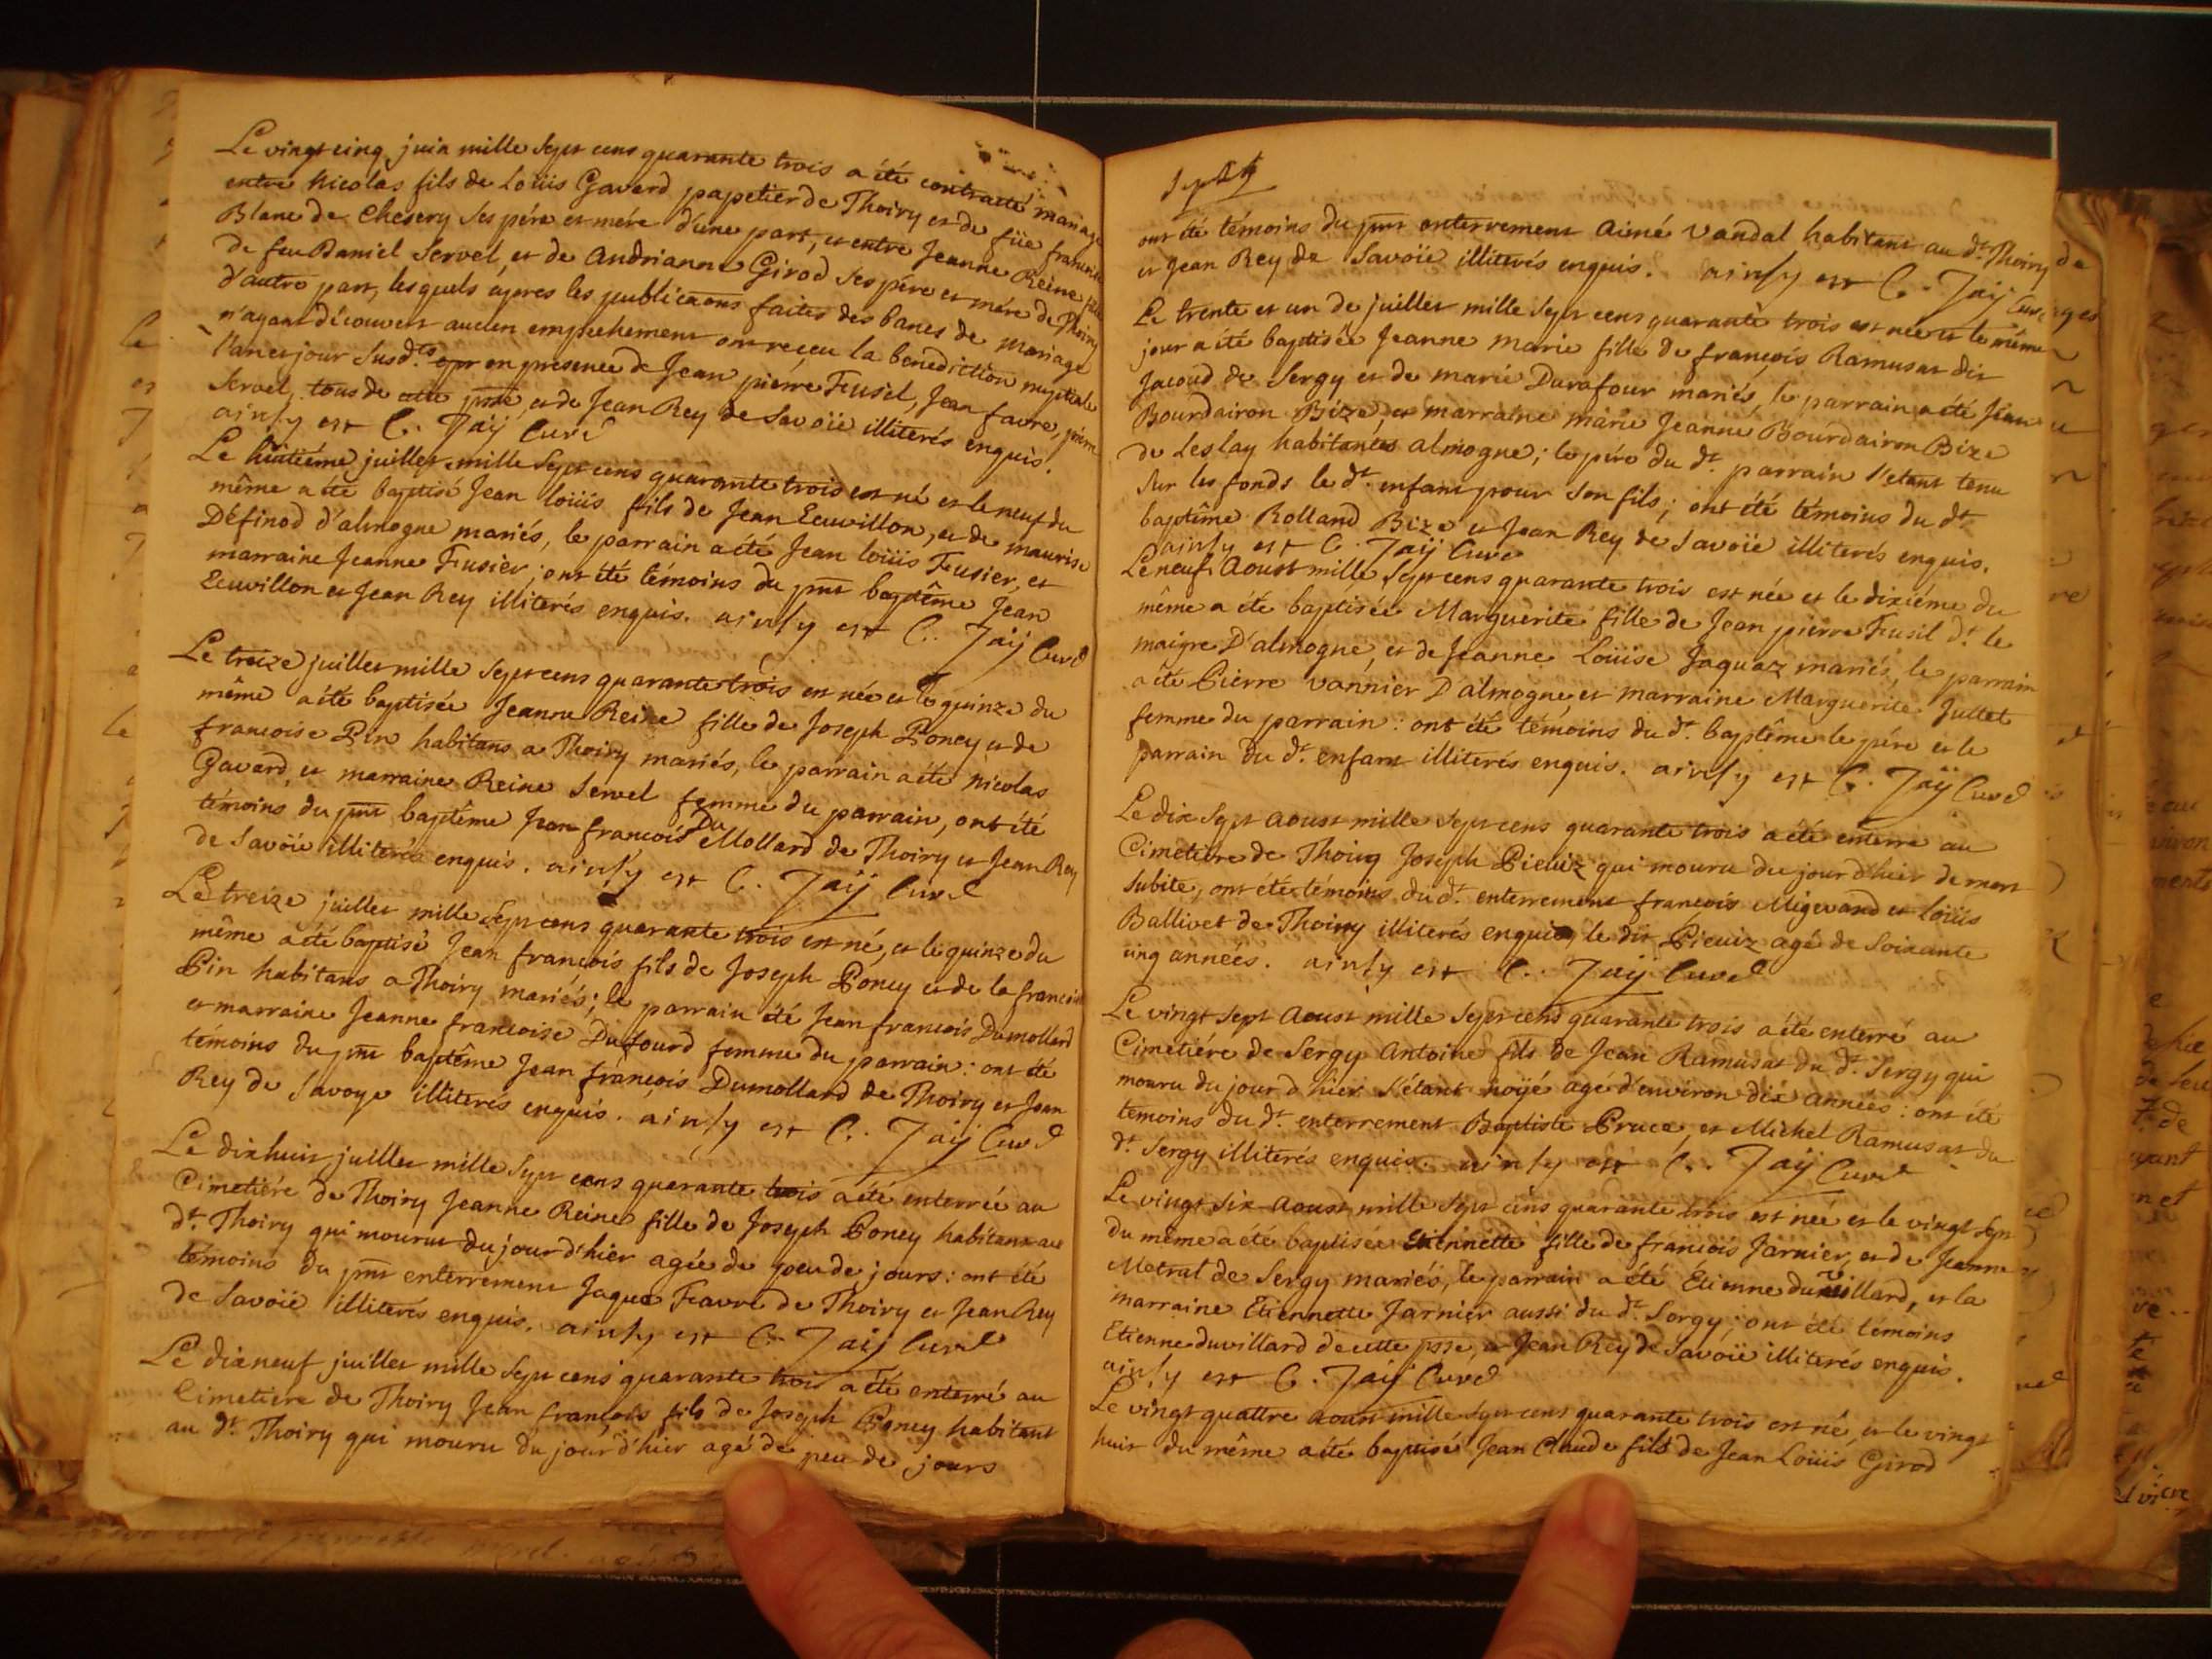 Le vingt cinq juin mille sept cens quarante trois a été contracté mariage
entre Nicolas fils de Loüis Gavard papetier de Thoiry et de füe francoise
Blanc de Chesery ses pére et mére d'une part, et entre Jeanne Reine fille
de feu Daniel Servel, et de Andrianne Girod ses pére et mére de Thoiry
d'autre part, lesquels apres les publicaons faites des bancs de mariage
n'ayant découvert aucun empechement ont reçeu la benediction nuptiale
l'an et jour susdts en presence de Jean piérre Fusil, Jean favre, pierre
Servel, tous de cette psse, et de Jean Rey de Savoïe illiterés enquis.
ainsy est C. Jaÿ Curé
Le huitiéme juillet mille sept cens quarante trois est né et le neuf du
même a été baptisé Jean loüis fils de Jean Ecuvillon, et de maurise
Définod d'almogne mariés, le parrain a été Jean loüis Fusier, et
marraine Jeanne Fusier; ont été témoins du pnt baptême Jean
Ecuvillon et Jean Rey illiterés enquis. ainsy est C. Jaÿ Curé
Le treize juillet mille sept cens quarante trois est née et le quinze du
même a été baptisée Jeanne Reine fille de Joseph Poncy et de
francoise Pin habitans a Thoiry mariés, le parrain a été Nicolas
Gavard, et marraine Reine Servel femme du parrain, ont été
témoins du pnt baptême Jean francois Du Mollard de Thoiry et Jean Rey
de Savoïe illiterés enquis. ainsy est C. Jaÿ Curé
Le treize juillet mille sept cens quarante trois est né, et le quinze du
même a été baptisé Jean francois fils de Joseph Poncy et de la francoise
Pin habitans a Thoiry mariés; le parrain été Jean francois Dumollard
et marraine Jeanne francoise Dufourd femme du parrain: ont été
témoins du pnt baptême Jean françois Dumollard de Thoiry et Jean
Rey de Savoye illiterés enquis. ainsy est C. Jaÿ Curé
Le dixhuit juillet mille sept cens quarante trois a été enterrée au
Cimetiére de Thoiry Jeanne Reine fille de Joseph Poncy habitant au
dt. Thoiry qui mourut du jour d'hier agée de peu de jours: ont été
témoins du pnt enterrement Jaque Favre de Thoiry et Jean Rey
de Savoïe illiterés enquis. ainsy est C. Jaÿ Curé
Le dixneuf juillet mille sept cens quarante trois a été enterré au
Cimetiere de Thoiry Jean françois fils de Joseph Poncy habitant
au dt. Thoiry qui mouru du jour d'hier agé de peu de jours
ont été témoins du pnt enterrement Aimé Vandal habitant au dt. Thoiry
et Jean Rey de Savoïe illiterés enquis. ainsy est C. Jaÿ Curé
Le trente et un de juillet mille sept cens quarante trois est née et le même
jour a été baptisée Jeanne marie fille de françois Ramusat dit
Jacoud de Sergy et de marie Durafour mariés, le parrain a été Jean
Bourdairon Bize, et marraine marie Jeanne Bourdairon Bize
de Leslay habitantes almogne; le pére du dt. parrain l'etant tenu
sur les fonds le dt. enfant pour son fils; ont été témoins du dt
baptême Rolland Bize et Jean Rey de Savoïe illiterés enquis.
ainsy est C. Jaÿ Curé
Le neuf Aoust mille sept cens quarante trois est née et le dixiéme du
même a été baptisée Marguerite fille de Jean pierre Fusil dt. le
maigre D'almogne, et de Jeanne Loüise Jaquaz mariés, le parrain
a été Pierre Vannier D'almogne, et marraine Marguerite Jullet
femme du parrain: ont été témoins du dt. baptême le pére et le
parrain du dt. enfant illiterés enquis. ainsy est C. Jaÿ Curé
Le dix sept Aoust mille sept cens quarante trois a été enterré au
Cimetiere de Thoiry Joseph Pieuiz qui mouru du jour d'hier de mort
subite, ont été témoins du dt. enterrement françois Migevand et loüis
Ballivet de Thoiry illiterés enquis, le dit Pieuiz agé de soixante
cinq années. ainsy est C. Jaÿ Curé
Le vingt sept Aoust mille sept cens quarante trois a été enterré au
Cimetiére de Sergy Antoine fils de Jean Ramusat du dt. Sergy qui
mouru du jour d'hier s'étant noÿé agé d'environ dix années: ont été
temoins du dt. enterrement Baptiste Pruce, et Michel Ramusat du
dt. Sergy illiterés enquis. ainsy est C. Jaÿ Curé
Le vingt six Aoust mille sept cens quarante trois est née et le vingt sept
du même a été baptisée Etiennette fille de francois Jarnier, et de Jeanne
Metral de Sergy mariés, le parrain a été Étienne duvillard, et la
marraine Etiennette Jarnier aussi du dt. Sergy; ont été témoins
Etienne duvillard de cette psse, et Jean Rey de Savoïe illiterés enquis.
ainsy est C. Jaÿ Curé
Le vingt quattre aoust mille sept cens quarante trois est né, et le vingt
huit du même a été baptisé Jean Claude fils de Jean Loüis Girod